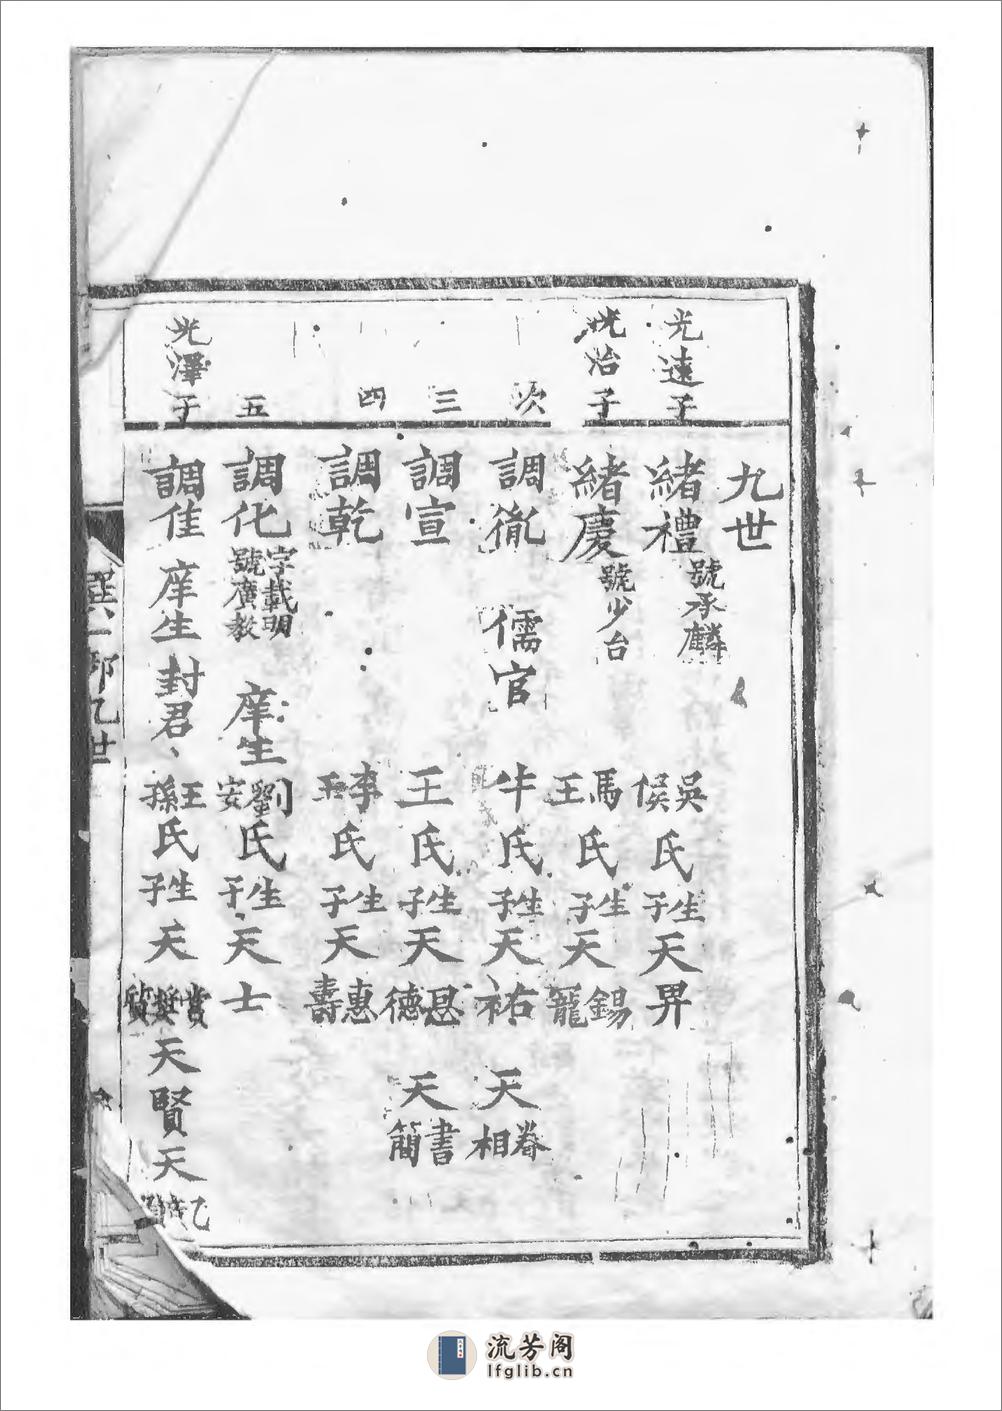 九世
光遠子
緒禮 號承麟 吳侯氏生子天畀
光治子
緒慶 號少台 馬王氏生子天錫寵
次
調胤 儒官 牛氏生子天祐 天眷相
三
調宣 王氏生子天恩德 天書簡
四
調乾 李王氏生子天惠壽
五
調化 字載明號廣教 庠生 劉安氏生子天士
光澤子
調隹 庠生封君 王孫氏生子天賞奬 天賢 天乙
九世
流芳阁
lfglib.cn